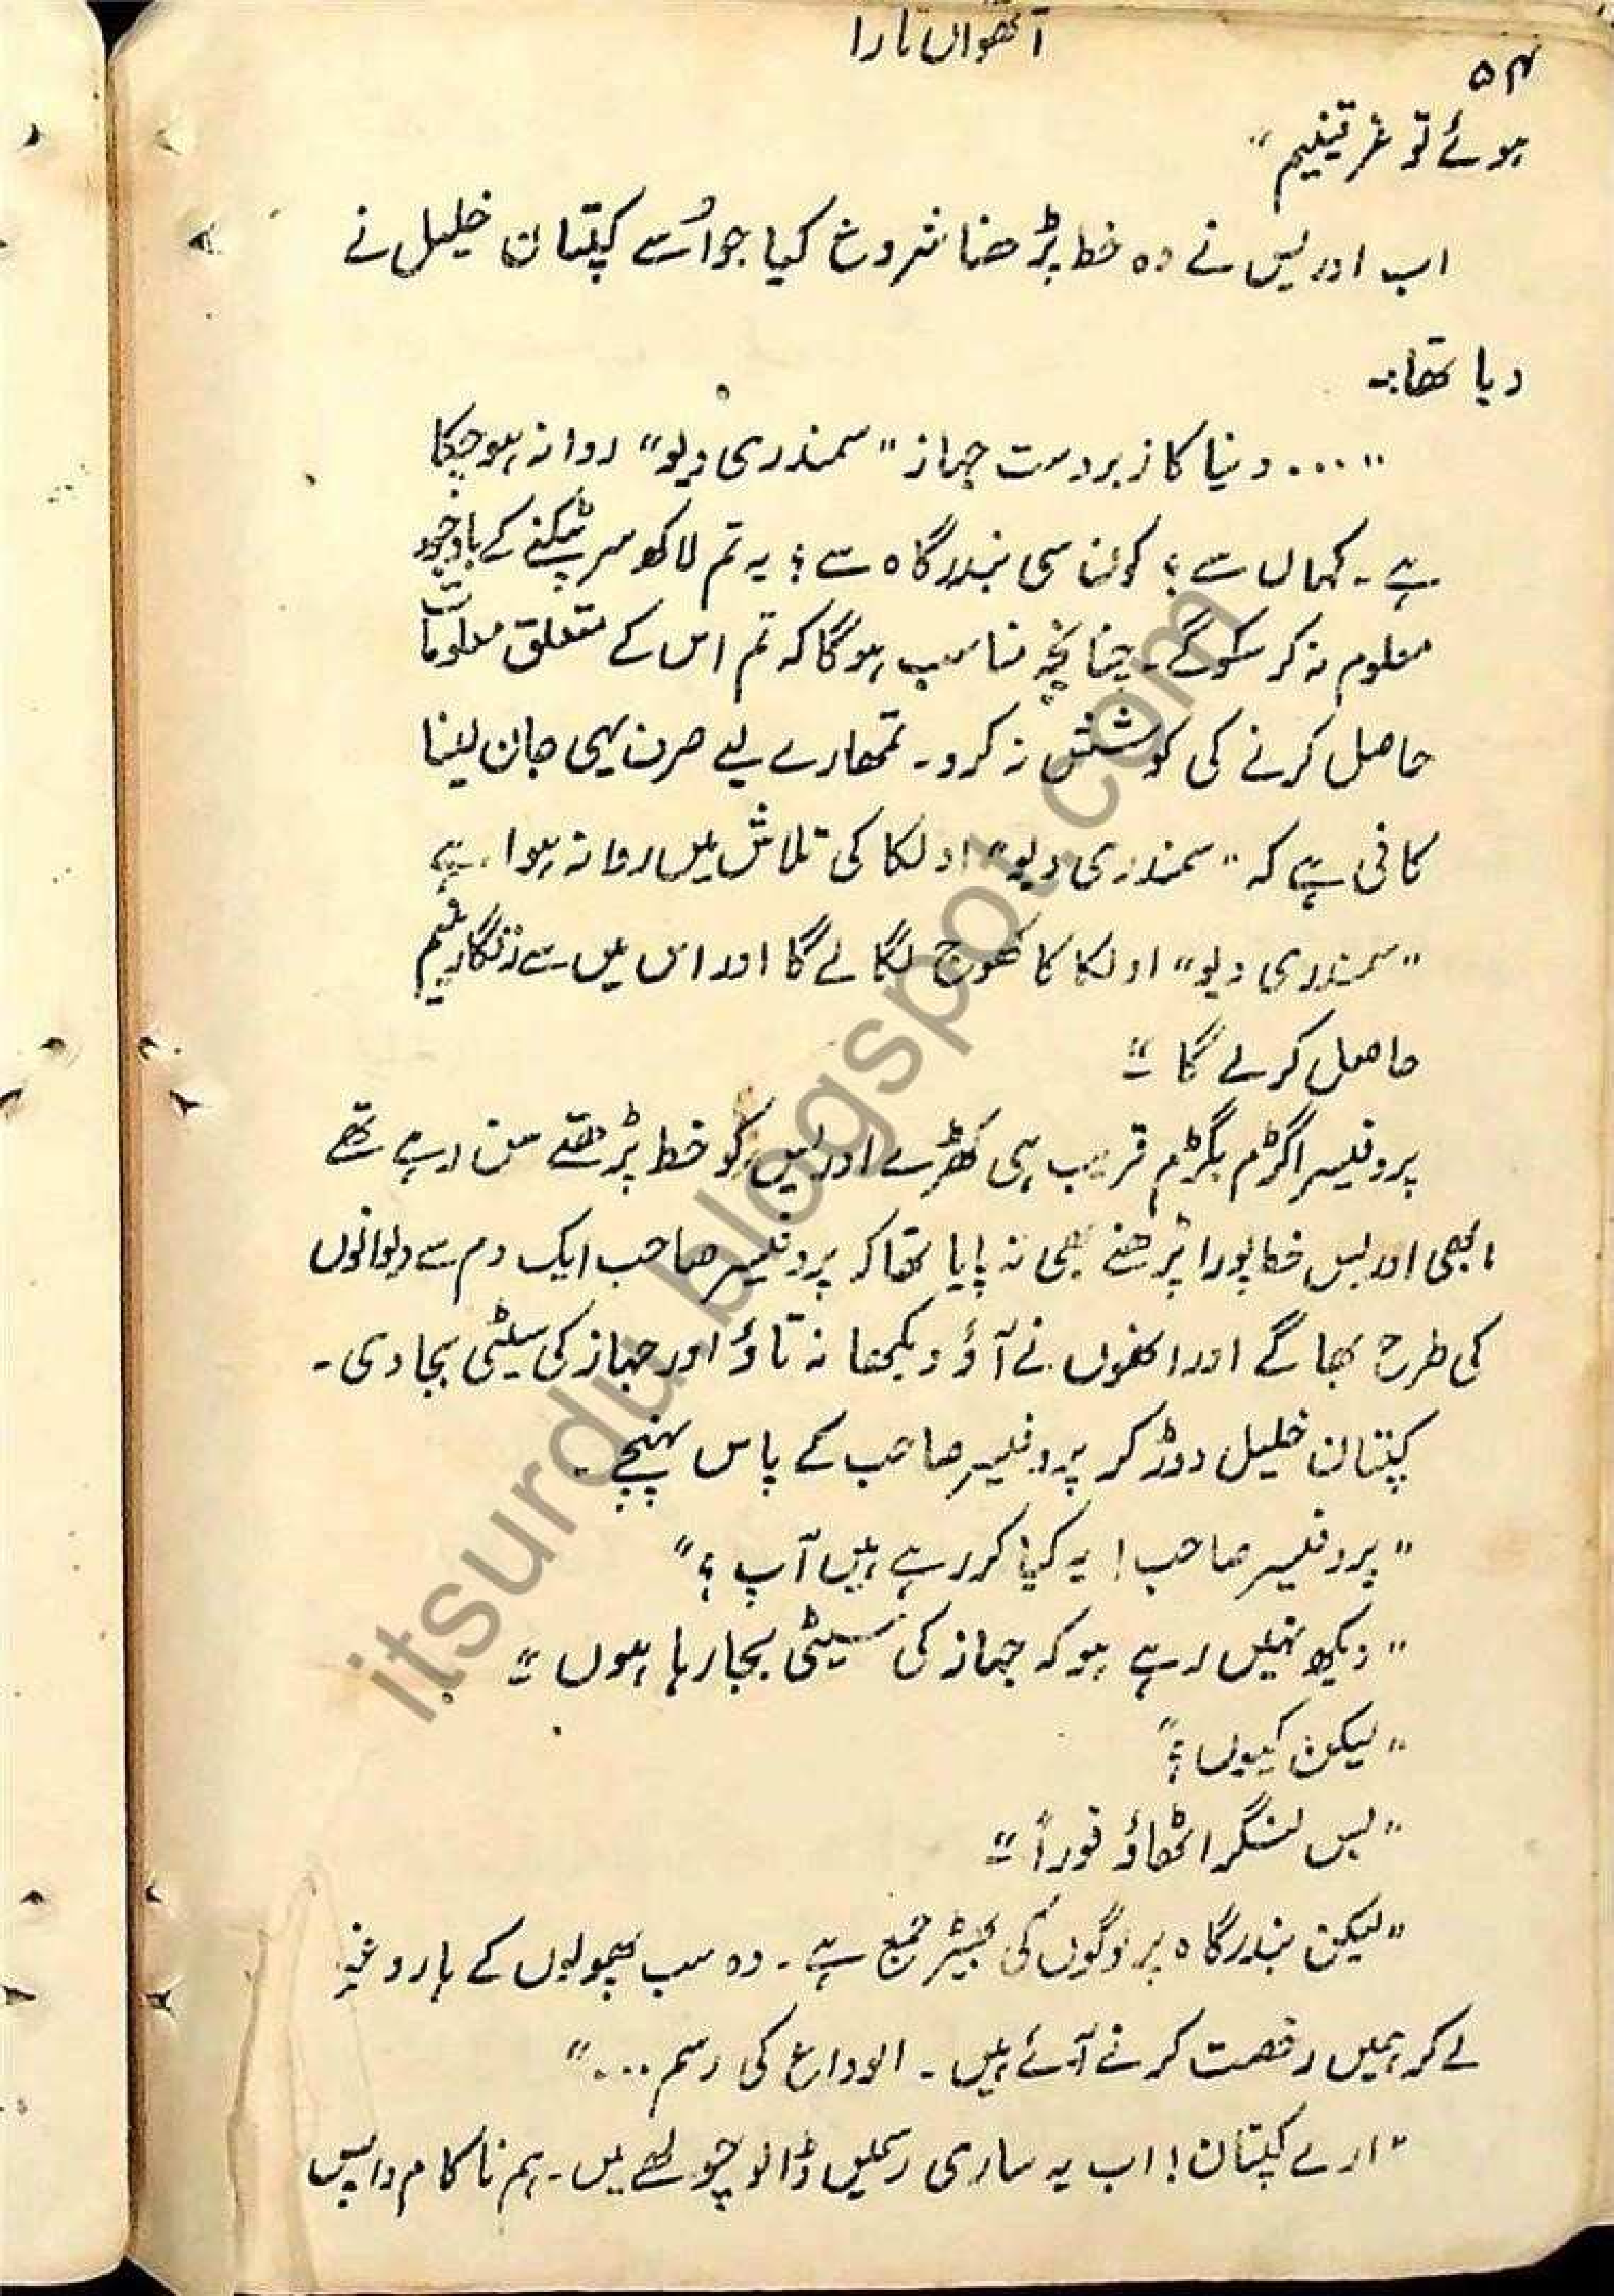 آٹھواں تارا
۵۴
ہوئے تو غرقینیم"
اب ادریس نے وہ خط پڑھنا شروع کیا جو اُسے کپتان خلیل نے
دیا تھا:۔
"....دنیا کا زبردست جہاز "سمندری دیو" روانہ ہو چکا
ہے۔ کہاں سے؟ کون سی بندرگاہ سے؟ یہ تم لاکھ سر پٹکنے کے باوجود
معلوم نہ کر سکو گے۔ چنانچہ مناسب ہو گا کہ تم اس کے متعلق معلومات
حاصل کرنے کی کوشش نہ کرو۔ تمھارے لیے صرف یہی جان لینا
کافی ہے کہ "سمندری دیو" اولکا کی تلاش میں روانہ ہوا ہے
"سمندری دیو" اولکا کا کھوج لگا لے گا اور اس میں سے
حاصل کرلے گا"۔
پروفیسر اگڑم بگڑم قریب ہی کھڑے ادریس کو خط پڑھتے سن رہے تھے
ابھی ادریس خط پورا پڑھنے بھی نہ پایا تھا کہ پروفیسر صاحب ایک دم سے دیوانوں
کی طرح بھاگے اور انھوں نے آؤ دیکھا نہ تاؤ اور جہاز کی سیٹی بجا دی۔
کپتان خلیل دوڑ کر پروفیسر صاحب کے پاس پہنچے۔
"پروفیسر صاحب! یہ کیا کر رہے ہیں آپ؟"
"دیکھ نہیں رہے ہو کہ جہاز کی سیٹی بجا رہا ہوں"۔
"لیکن کیوں؟"
"بس لنگر اٹھاؤ فوراً"۔
"لیکن بندرگاہ پر لوگوں کی بھیڑ جمع ہے۔ وہ سب پھولوں کے ہار وغیرہ
لے کر ہمیں رخصت کرنے آئے ہیں۔ الوداع کی رسم...."
"ارے کپتان! اب یہ ساری رسمیں ڈالو چولھے میں۔ ہم ناکام واپس
itsurdu.blogspot.com